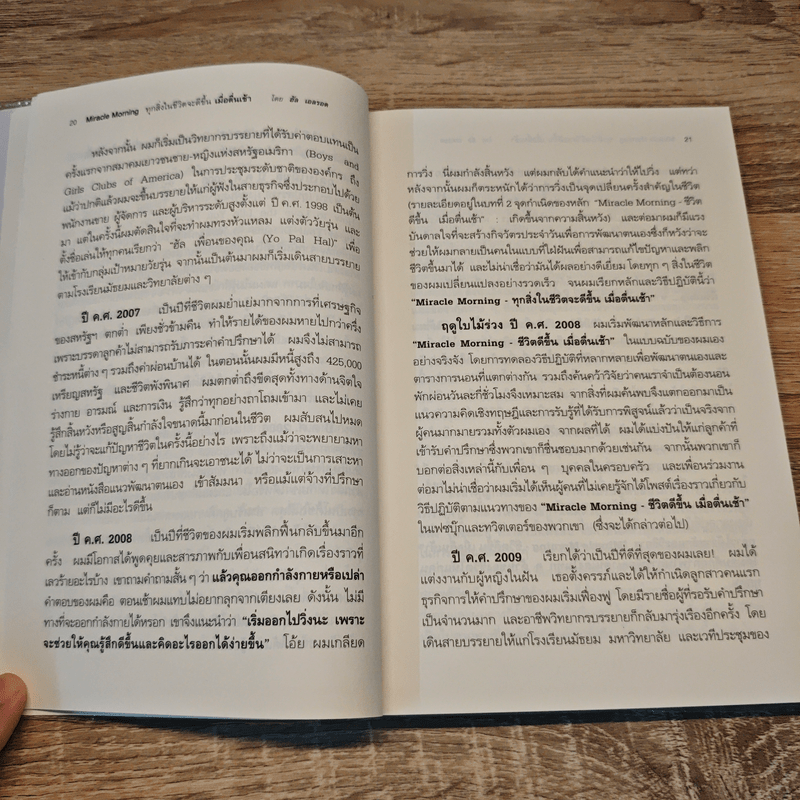 20 Miracle Morning ทุกสิ่งในชีวิตจะดีขึ้น เมื่อตื่นเช้า โดย ฮัล เอลรอด
หลังจากนั้น ผมก็เริ่มเป็นวิทยากรบรรยายที่ได้รับค่าตอบแทนเป็น
ครั้งแรกจากสมาคมเยาวชนชาย-หญิงแห่งสหรัฐอเมริกา (Boys and
Girls Clubs of America) ในการประชุมระดับชาติขององค์กร ถึง
แม้ว่าปกติแล้วผมจะขึ้นบรรยายให้แก่ผู้ฟังในสายธุรกิจซึ่งประกอบไปด้วย
พนักงานขาย ผู้จัดการ และผู้บริหารระดับสูงตั้งแต่ ปี ค.ศ. 1998 เป็นต้น
มา แต่ในครั้งนี้ผมตัดสินใจที่จะทำผมทรงหัวแหลม แต่งตัววัยรุ่น และ
ตั้งชื่อเล่นให้ทุกคนเรียกว่า "ฮัล เพื่อนของคุณ (Yo Pal Hal)" เพื่อ
ให้เข้ากับกลุ่มเป้าหมายวัยรุ่น จากนั้นเป็นต้นมาผมก็เริ่มเดินสายบรรยาย
ตามโรงเรียนมัธยมและวิทยาลัยต่าง ๆ
ปี ค.ศ. 2007 เป็นปีที่ชีวิตผมย่ำแย่มากจากการที่เศรษฐกิจ
ของสหรัฐฯ ตกต่ำ เพียงชั่วข้ามคืน ทำให้รายได้ของผมหายไปกว่าครึ่ง
เพราะบรรดาลูกค้าไม่สามารถรับภาระค่าคำปรึกษาได้ ผมจึงไม่สามารถ
ชำระหนี้ต่าง ๆ รวมถึงค่าผ่อนบ้านได้ ในตอนนั้นผมมีหนี้สูงถึง 425,000
เหรียญสหรัฐ และชีวิตพังพินาศ ผมตกต่ำถึงขีดสุดทั้งทางด้านจิตใจ
ร่างกาย อารมณ์ และการเงิน รู้สึกว่าทุกอย่างถาโถมเข้ามา และไม่เคย
รู้สึกสิ้นหวังหรือสูญสิ้นกำลังใจขนาดนี้มาก่อนในชีวิต ผมสับสนไปหมด
โดยไม่รู้ว่าจะแก้ปัญหาชีวิตในครั้งนี้อย่างไร เพราะถึงแม้ว่าจะพยายามหา
ทางออกของปัญหาต่าง ๆ ที่ยากเกินจะเอาชนะได้ ไม่ว่าจะเป็นการเสาะหา
และอ่านหนังสือแนวพัฒนาตนเอง เข้าสัมมนา หรือแม้แต่จ้างที่ปรึกษา
ก็ตาม แต่ก็ไม่มีอะไรดีขึ้น
ปี ค.ศ. 2008 เป็นปีที่ชีวิตของผมเริ่มพลิกฟื้นกลับขึ้นมาอีก
ครั้ง ผมมีโอกาสได้พูดคุยและสารภาพกับเพื่อนสนิทว่าเกิดเรื่องราวที่
เลวร้ายอะไรบ้าง เขาถามคำถามสั้น ๆ ว่า แล้วคุณออกกำลังกายหรือเปล่า
คำตอบของผมคือ ตอนเช้าผมแทบไม่อยากลุกจากเตียงเลย ดังนั้น ไม่มี
ทางที่จะออกกำลังกายได้หรอก เขาจึงแนะนำว่า "เริ่มออกไปวิ่งนะ เพราะ
จะช่วยให้คุณรู้สึกดีขึ้นและคิดอะไรออกได้ง่ายขึ้น" โอ้ย ผมเกลียด
21
การวิ่ง นี่ผมกำลังสิ้นหวัง แต่ผมกลับได้คำแนะนำว่าให้ไปวิ่ง แต่ทว่า
หลังจากนั้นผมก็ตระหนักได้ว่าการวิ่งเป็นจุดเปลี่ยนครั้งสำคัญในชีวิต
(รายละเอียดอยู่ในบทที่ 2 จุดกำเนิดของหลัก "Miracle Morning - ชีวิต
ดีขึ้น เมื่อตื่นเช้า" : เกิดขึ้นจากความสิ้นหวัง) และต่อมาผมก็มีแรง
บันดาลใจที่จะสร้างกิจวัตรประจำวันเพื่อการพัฒนาตนเองซึ่งก็หวังว่าจะ
ช่วยให้ผมกลายเป็นคนในแบบที่ใฝ่ฝันเพื่อสามารถแก้ไขปัญหาและพลิก
ชีวิตขึ้นมาได้ และไม่น่าเชื่อว่ามันได้ผลอย่างดีเยี่ยม โดยทุก ๆ สิ่งในชีวิต
ของผมเปลี่ยนแปลงอย่างรวดเร็ว จนผมเรียกหลักและวิธีปฏิบัตินี้ว่า
"Miracle Morning - ทุกสิ่งในชีวิตจะดีขึ้น เมื่อตื่นเช้า"
ฤดูใบไม้ร่วง ปี ค.ศ. 2008 ผมเริ่มพัฒนาหลักและวิธีการ
"Miracle Morning - ชีวิตดีขึ้น เมื่อตื่นเช้า" ในแบบฉบับของผมเอง
อย่างจริงจัง โดยการทดลองวิธีปฏิบัติที่หลากหลายเพื่อพัฒนาตนเองและ
ตารางการนอนที่แตกต่างกัน รวมถึงค้นคว้าวิจัยว่าคนเราจำเป็นต้องนอน
พักผ่อนวันละกี่ชั่วโมงจึงเหมาะสม จากสิ่งที่ผมค้นพบจึงแตกออกมาเป็น
แนวความคิดเชิงทฤษฎีและการรับรู้ที่ได้รับการพิสูจน์แล้วว่าเป็นจริงจาก
ผู้คนมากมายรวมทั้งตัวผมเอง จากผลที่ได้ ผมได้แบ่งปันให้แก่ลูกค้าที่
เข้ารับคำปรึกษาซึ่งพวกเขาก็ชื่นชอบมากด้วยเช่นกัน จากนั้นพวกเขาก็
บอกต่อสิ่งเหล่านี้กับเพื่อน ๆ บุคคลในครอบครัว และเพื่อนร่วมงาน
ต่อมาไม่น่าเชื่อว่าผมเริ่มได้เห็นผู้คนที่ไม่เคยรู้จักได้โพสต์เรื่องราวเกี่ยวกับ
วิธีปฏิบัติตามแนวทางของ "Miracle Morning - ชีวิตดีขึ้น เมื่อตื่นเช้า"
ในเฟซบุ๊กและทวิตเตอร์ของพวกเขา (ซึ่งจะได้กล่าวต่อไป)
ปี ค.ศ. 2009 เรียกได้ว่าเป็นปีที่ดีที่สุดของผมเลย! ผมได้
แต่งงานกับผู้หญิงในฝัน เธอตั้งครรภ์และได้ให้กำเนิดลูกสาวคนแรก
ธุรกิจการให้คำปรึกษาของผมเริ่มเฟื่องฟู โดยมีรายชื่อผู้ที่รอรับคำปรึกษา
เป็นจำนวนมาก และอาชีพวิทยากรบรรยายก็กลับมารุ่งเรืองอีกครั้ง โดย
เดินสายบรรยายให้แก่โรงเรียนมัธยม มหาวิทยาลัย และเวทีประชุมของ